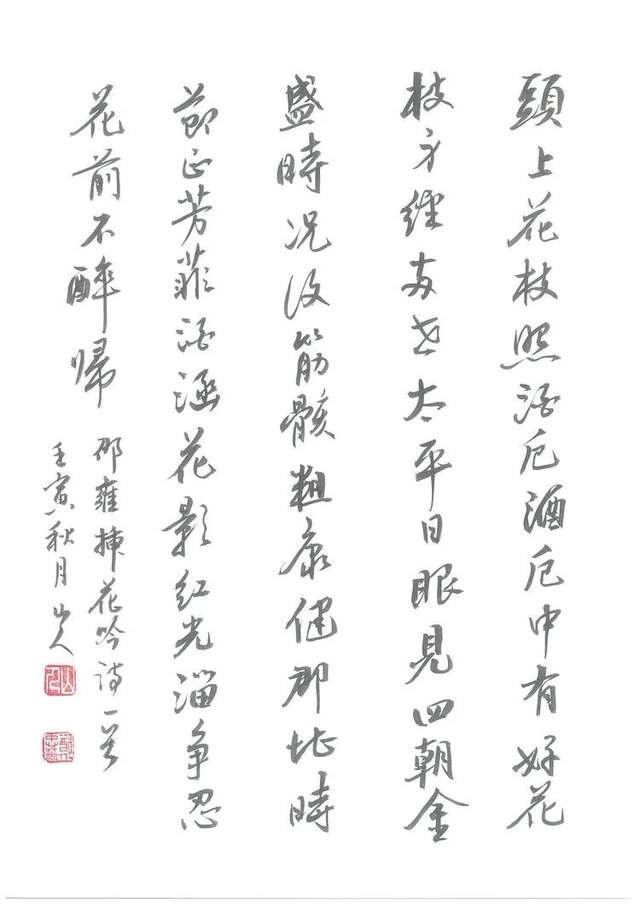 頭上花枝照酒卮酒卮中有好花
枝身經两世太平日眼見四朝全
盛時况復筋骸粗康健那堪時
節正芳菲酒涵花影红光溜争忍
花前不醉歸
邵雍插花吟詩一首
壬寅秋月山人